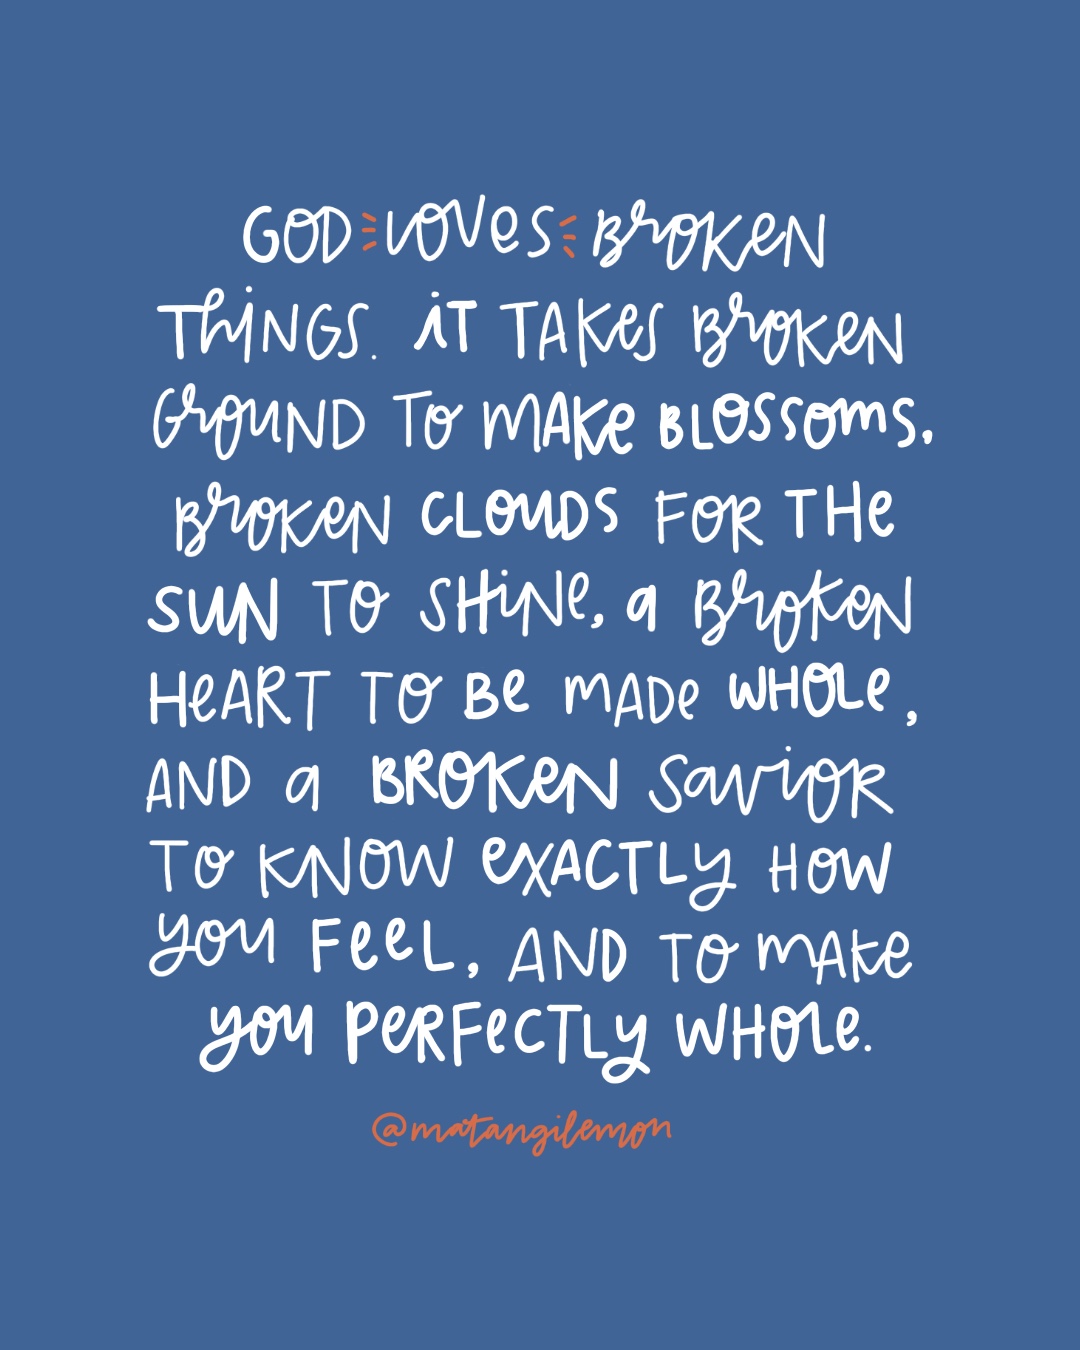 GOD LOVES BROKEN
THINGS. IT TAKES BROKEN
GROUND TO MAKE BLOSSOMS,
BROKEN CLOUDS FOR THE
SUN TO SHINE, a BROKEN
HEART TO BE MADE WHOLE,
AND a BROKEN SAVIOR
TO KNOW EXACTLY HOW
YOU FEEL, AND TO MAKE
YOU PERFECTLY WHOLE.
@matangilemon